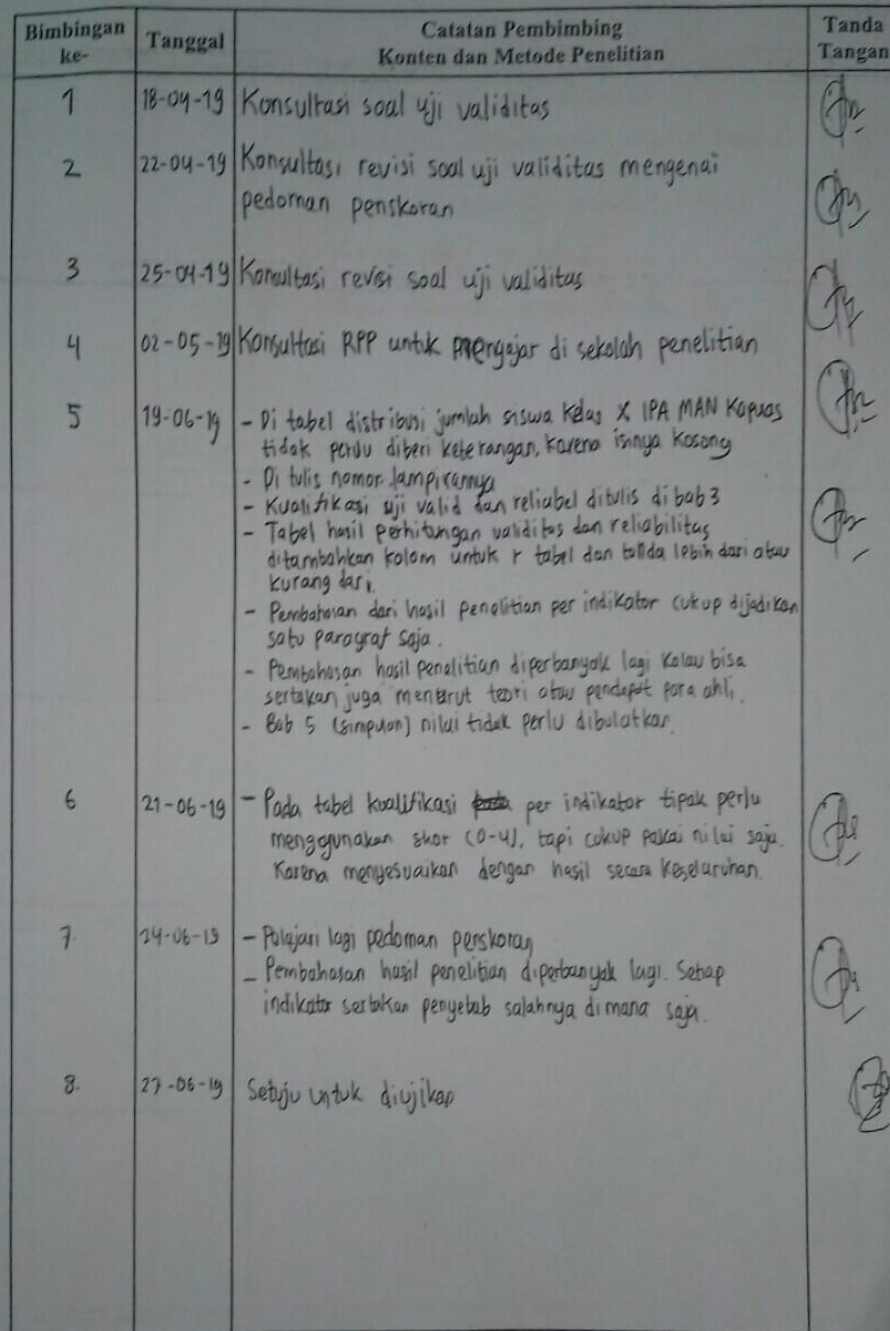 Bimbingan ke- Tanggal Catatan Pembimbing Konten dan Metode Penelitian Tanda Tangan
1 18-04-19 Konsultasi soal uji validitas
2 22-04-19 Konsultasi revisi soal uji validitas mengenai
pedoman penskoran
3 25-04-19 Konsultasi revisi soal uji validitas
4 02-05-19 Konsultasi RPP untuk mengajar di sekolah penelitian
5 19-06-19 - Di tabel distribusi jumlah siswa Kelas X IPA MAN Kapuas
tidak perlu diberi keterangan, karena isinya kosong
- Di tulis nomor lampirannya
- Kualifikasi uji valid dan reliabel ditulis di bab 3
- Tabel hasil perhitungan validitas dan reliabilitas
ditambahkan kolom untuk r tabel dan tanda lebih dari atau
kurang dari.
- Pembahasan dari hasil penelitian per indikator cukup dijadikan
satu paragraf saja.
- Pembahasan hasil penelitian diperbanyak lagi kalau bisa
sertakan juga menurut teori atau pendapat para ahli.
- Bab 5 (simpulan) nilai tidak perlu dibulatkan.
6 21-06-19 - Pada tabel kualifikasi per indikator tipak perlu
menggunakan skor (0-4), tapi cukup pakai nilai saja.
Karena menyesuaikan dengan hasil secara keseluruhan.
7. 24-06-19 - Pelajari lagi pedoman penskoran
- Pembahasan hasil penelitian diperbanyak lagi. Setiap
indikator sertakan penyebab salahnya dimana saja.
8. 27-06-19 Setuju untuk diujikan